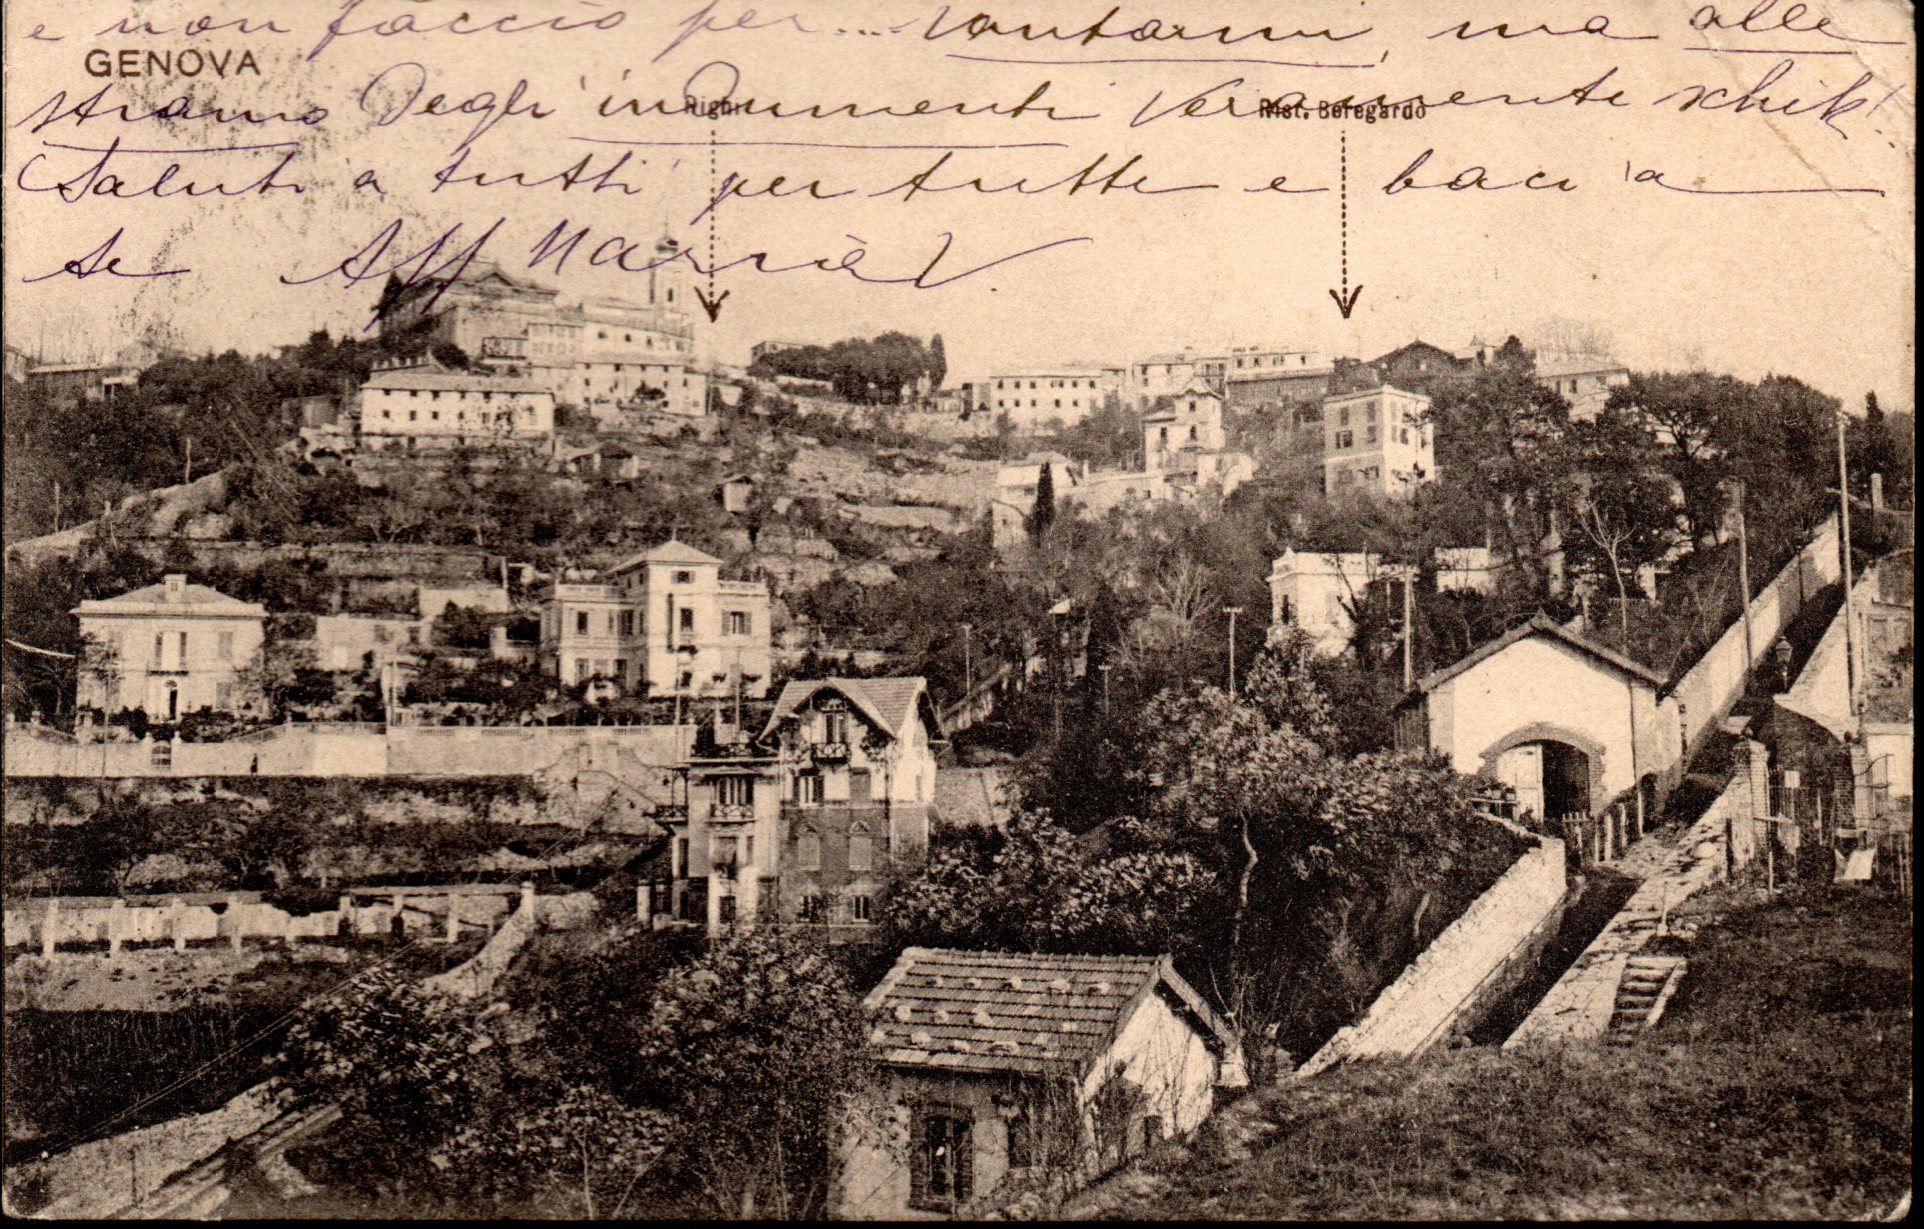 e non faccio per.... vantarmi, ma alle
GENOVA
stramo degli indumenti veramente schik!
Righi
Rist. Beregardo
Saluti a tutti per tutte e baci a
te Aff Maria V